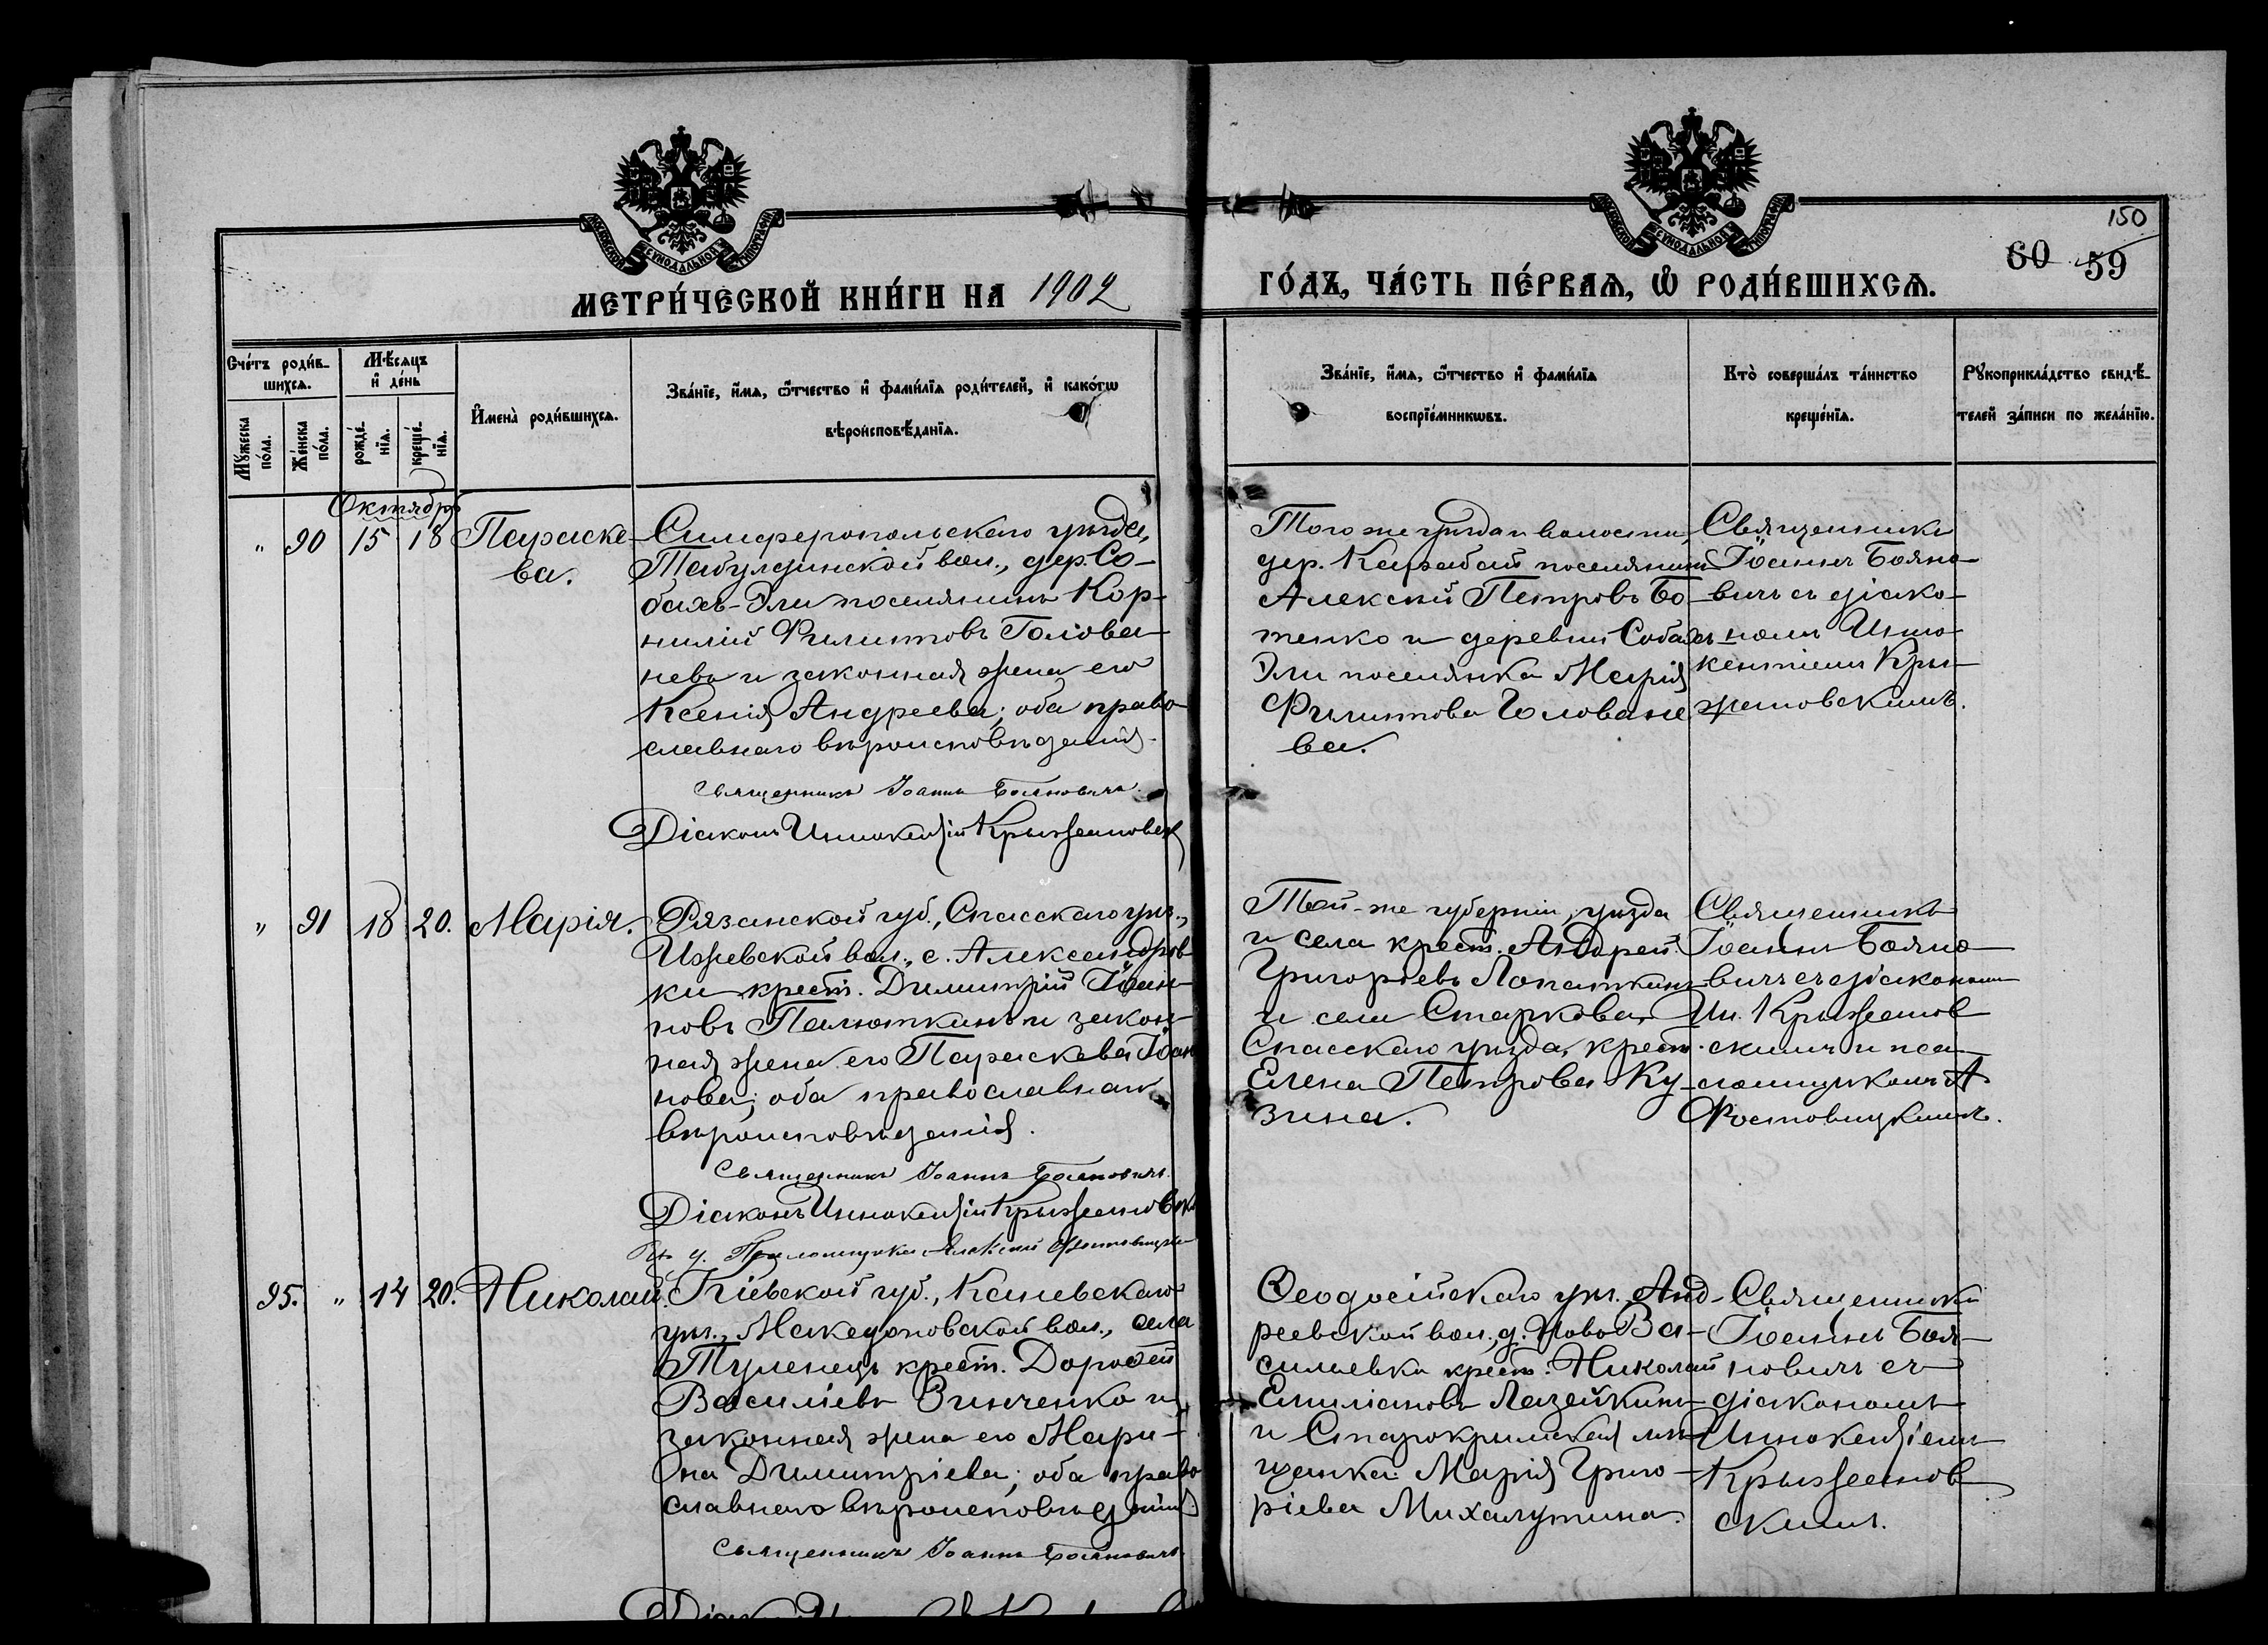 150
60 59
МОСКОВСКОЙ СѴНОДАЛЬНОЙ ТИПОГРАФІИ
МОСКОВСКОЙ СѴНОДАЛЬНОЙ ТИПОГРАФІИ
МЕТРИ́ЧЕСКОЙ КНИ́ГИ НА 1902
ГО́ДЪ, ЧА́СТЬ ПЕ́РВАѦ, Ѡ҆ РОДИ́ВШИХСѦ.
Сче́тъ роди́в-
шихсѧ.
Мꙋ́жеска
по́ла.
Же́нска
по́ла.
Мѣ́сѧцъ
и҆ де́нь
рожде́-
нїѧ.
креще́-
нїѧ.
И҆мена̀ роди́вшихсѧ.
Зва́нїе, и҆́мѧ, ѻ҆́тчество и҆ фами́лїѧ роди́телей, и҆ како́гѡ
вѣроисповѣ́данїѧ.
Зва́нїе, и҆́мѧ, ѻ҆́тчество и҆ фами́лїѧ
воспрїе́мникѡвъ.
Кто̀ соверша́лъ та́инство
креще́нїѧ.
Рꙋкоприкла́дство свидѣ́-
телей за́писи по жела́нїю.
Октябрь
" 90 15 18 Параске
ва.
Симферопольскаго уѣзда,
Табулдинской вол., дер. Со-
бахъ-Эли поселянинъ Кор-
нилій Филиповъ Голова-
невъ и законная жена его
Ксенія Андреева; оба право
славнаго вѣроисповѣданія.
Священникъ Іоаннъ Бояновичъ.
Діаконъ Иннокентій Крыжановск
Того же уѣзда и волости,
дер. Карабай поселянинъ
Алексій Петровъ Бо-
тенко и деревни Собахъ
Эли поселянка Марія
Филиппова Головане
ва.
Священникъ
Іоаннъ Бояно-
вичъ съ діако-
номъ Инно-
кентіемъ Кры-
жановскимъ.
" 91 18 20. Марія.
Рязанской губ., Спасскаго уѣз.,
Ижевской вол., с. Александров
ки крест. Димитрій Іоан-
новъ Палюткинъ и закон-
ная жена его Параскева Іоан
нова; оба православнаго
вѣроисповѣданія.
Священникъ Іоаннъ Бояновичъ.
Діаконъ Иннокентій Крыжановск
Псаломщикъ Алексій
Той-же губерніи, уѣзда
и села крест. Андрей
Григорьевъ Лопаткинъ
и села Старкова,
Спасскаго уѣзда, крест.
Елена Петрова Ку-
зина.
Священникъ
Іоаннъ Бояно-
вичъ съ діакономъ
Ин. Крыжанов
скимъ и пса-
ломщикомъ А
Фостовицкимъ.
95. " 14 20. Николай.
Кіевской губ., Каневскаго
уѣз., Македоновской вол., села
Тулинецъ крест. Дорофей
Василіевъ Зинченко и
законная жена его Мари-
на Димитріева; оба право
славнаго вѣроисповѣданія
Священникъ Іоаннъ Бояновичъ.
Ѳеодосійскаго уѣз. Анд-
реевской вол., д. Ново Ва-
сильевка крест. Николай
Емиліановъ Лазейкинъ
и Старокрымская мѣ-
щанка Марія Григо-
ріева Михалутина.
Священникъ
Іоаннъ Боя-
новичъ съ
діакономъ
Иннокентіемъ
Крыжанов
скимъ.